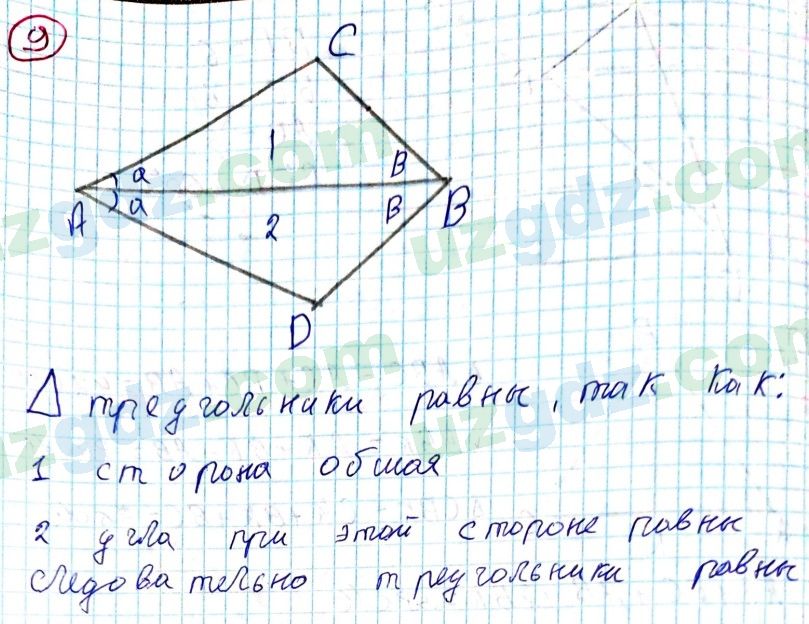 9
C
1
a
B
A
a
B
B
2
D
Δ треугольники равны, так как:
1 сторона общая
2 угла при этой стороне равны
следовательно треугольники равны
uzgdz.com
uzgdz.com
uzgdz.com
uzgdz.com